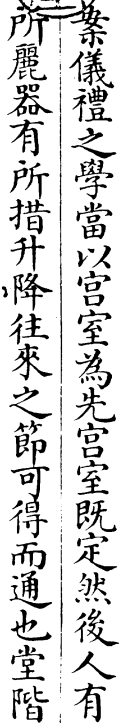 案儀禮之學當以宫室為先宫室既定然後人有
所麗器有所措升降往來之節可得而通也堂階